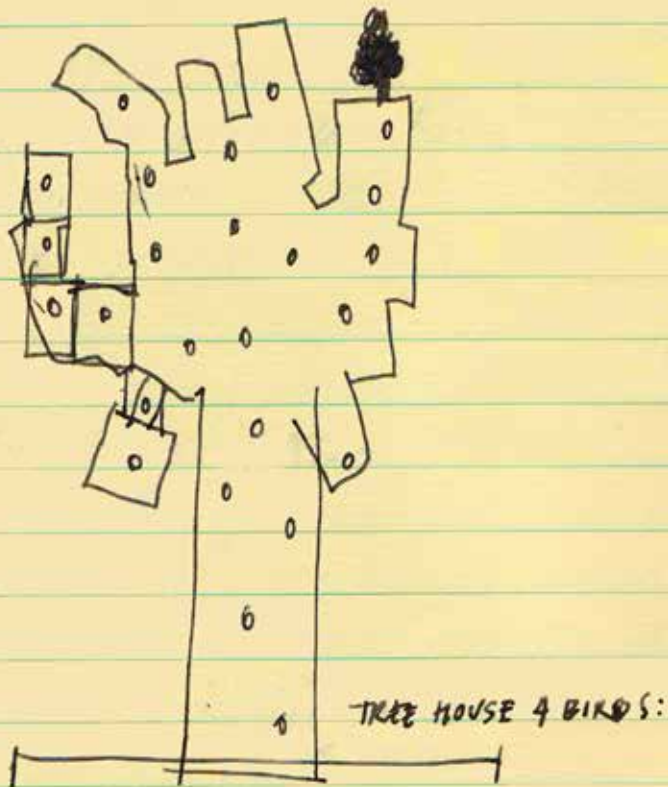 TREE HOUSE 4 BIRDS: